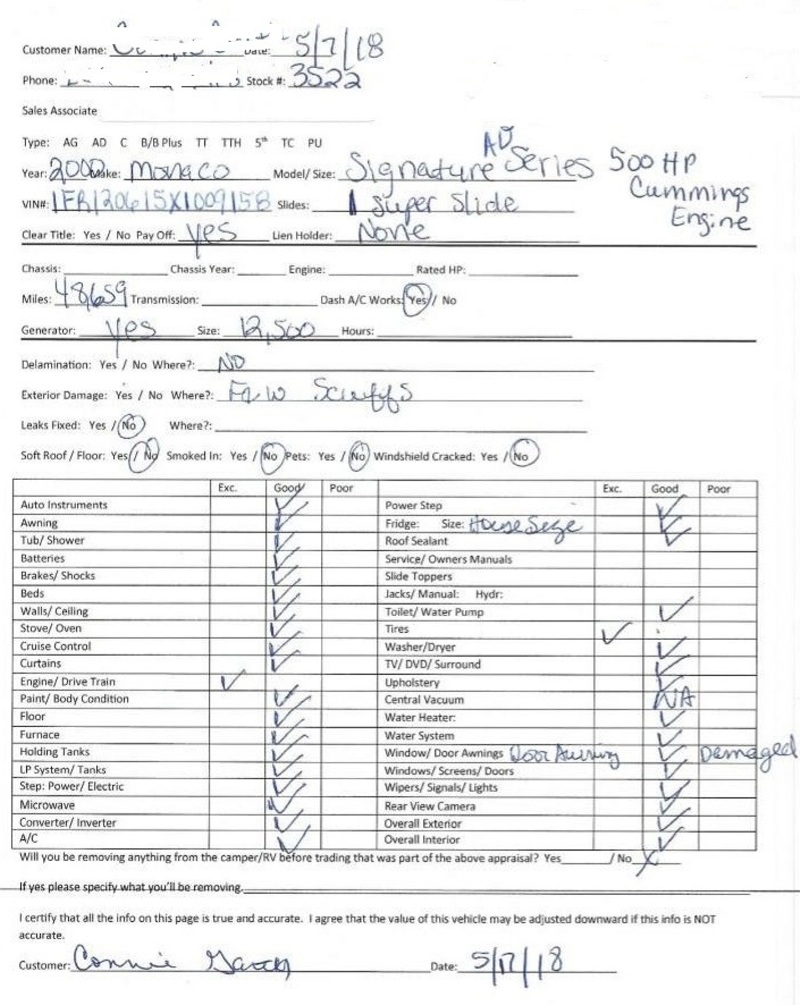 Customer Name: Date: 5/7/18
Phone: Stock #: 3522
Sales Associate
Type: AG AD C B/B Plus TT TTH 5th TC PU
Year: 2000 Make: Monaco Model/ Size: Signature Series AD 500 HP
Cummings
Engine
VIN#: 1FR120615X1009158 Slides: 1 Super Slide
Clear Title: Yes / No Pay Off: yes Lien Holder: None
Chassis: Chassis Year: Engine: Rated HP:
Miles: 48,659 Transmission: Dash A/C Works: Yes / No
Generator: yes Size: 12,500 Hours:
Delamination: Yes / No Where?: NO
Exterior Damage: Yes / No Where?: Few Scuffs
Leaks Fixed: Yes / No Where?:
Soft Roof / Floor: Yes / No Smoked In: Yes / No Pets: Yes / No Windshield Cracked: Yes / No
Exc. Good Poor Exc. Good Poor
Auto Instruments ✓ Power Step ✓
Awning ✓ Fridge: Size: House Seze ✓
Tub/ Shower ✓ Roof Sealant ✓
Batteries ✓ Service/ Owners Manuals
Brakes/ Shocks ✓ Slide Toppers
Beds ✓ Jacks/ Manual: Hydr:
Walls/ Ceiling ✓ Toilet/ Water Pump ✓
Stove/ Oven ✓ Tires ✓
Cruise Control ✓ Washer/Dryer ✓
Curtains ✓ TV/ DVD/ Surround ✓
Engine/ Drive Train ✓ Upholstery ✓
Paint/ Body Condition ✓ Central Vacuum NA
Floor ✓ Water Heater: ✓
Furnace ✓ Water System ✓
Holding Tanks ✓ Window/ Door Awnings Door Awning ✓ Damaged
LP System/ Tanks ✓ Windows/ Screens/ Doors ✓
Step: Power/ Electric ✓ Wipers/ Signals/ Lights ✓
Microwave ✓ Rear View Camera ✓
Converter/ Inverter ✓ Overall Exterior ✓
A/C ✓ Overall Interior ✓
Will you be removing anything from the camper/RV before trading that was part of the above appraisal? Yes / No X
If yes please specify what you'll be removing.
I certify that all the info on this page is true and accurate. I agree that the value of this vehicle may be adjusted downward if this info is NOT
accurate.
Customer: Connie Date: 5/17/18